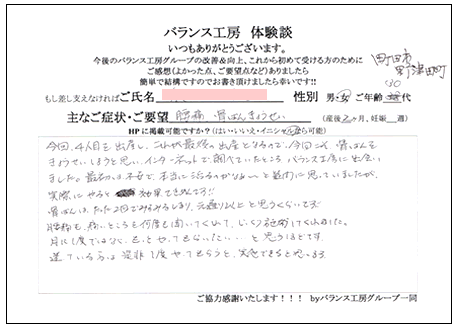 バランス工房 体験談
いつもありがとうございます。
今後のバランス工房グループの改善&向上、これから初めて受ける方のために
ご感想(よかった点、ご要望点など)ありましたら
簡単で結構ですのでお書き頂けましたら幸いです!!
町田市
野津田町
もし差し支えなければご氏名 性別 男・女 ご年齢 30代
主なご症状・ご要望 腰痛 骨ばんきょうせい (産後 2ヶ月、妊娠 週)
HPに掲載可能ですか?(はい・いいえ・イニシャルなら可能)
今回、4人目を出産し、これが最後の出産となるので、今回こそ、骨ばんを
きょうせいしようと思い、インターネットで調べていたところ バランス工房に出会い
ました。最初は不安で、本当に治るのかな〜と疑問に思っていましたが、
実際にやると 効果てきめんです!!
骨ばんは、たった2回でみるみるしまり、元通り以上と思うくらいです
腰痛も、痛いところを何度も聞いてくれて、じっくり施術してくれました。
月に1度ではなく、ずっと やってもらいたい・・・と思うほどです。
迷っている方は 是非1度 やってもらうと、実感できると思います
ご協力感謝いたします!!! byバランス工房グループ一同